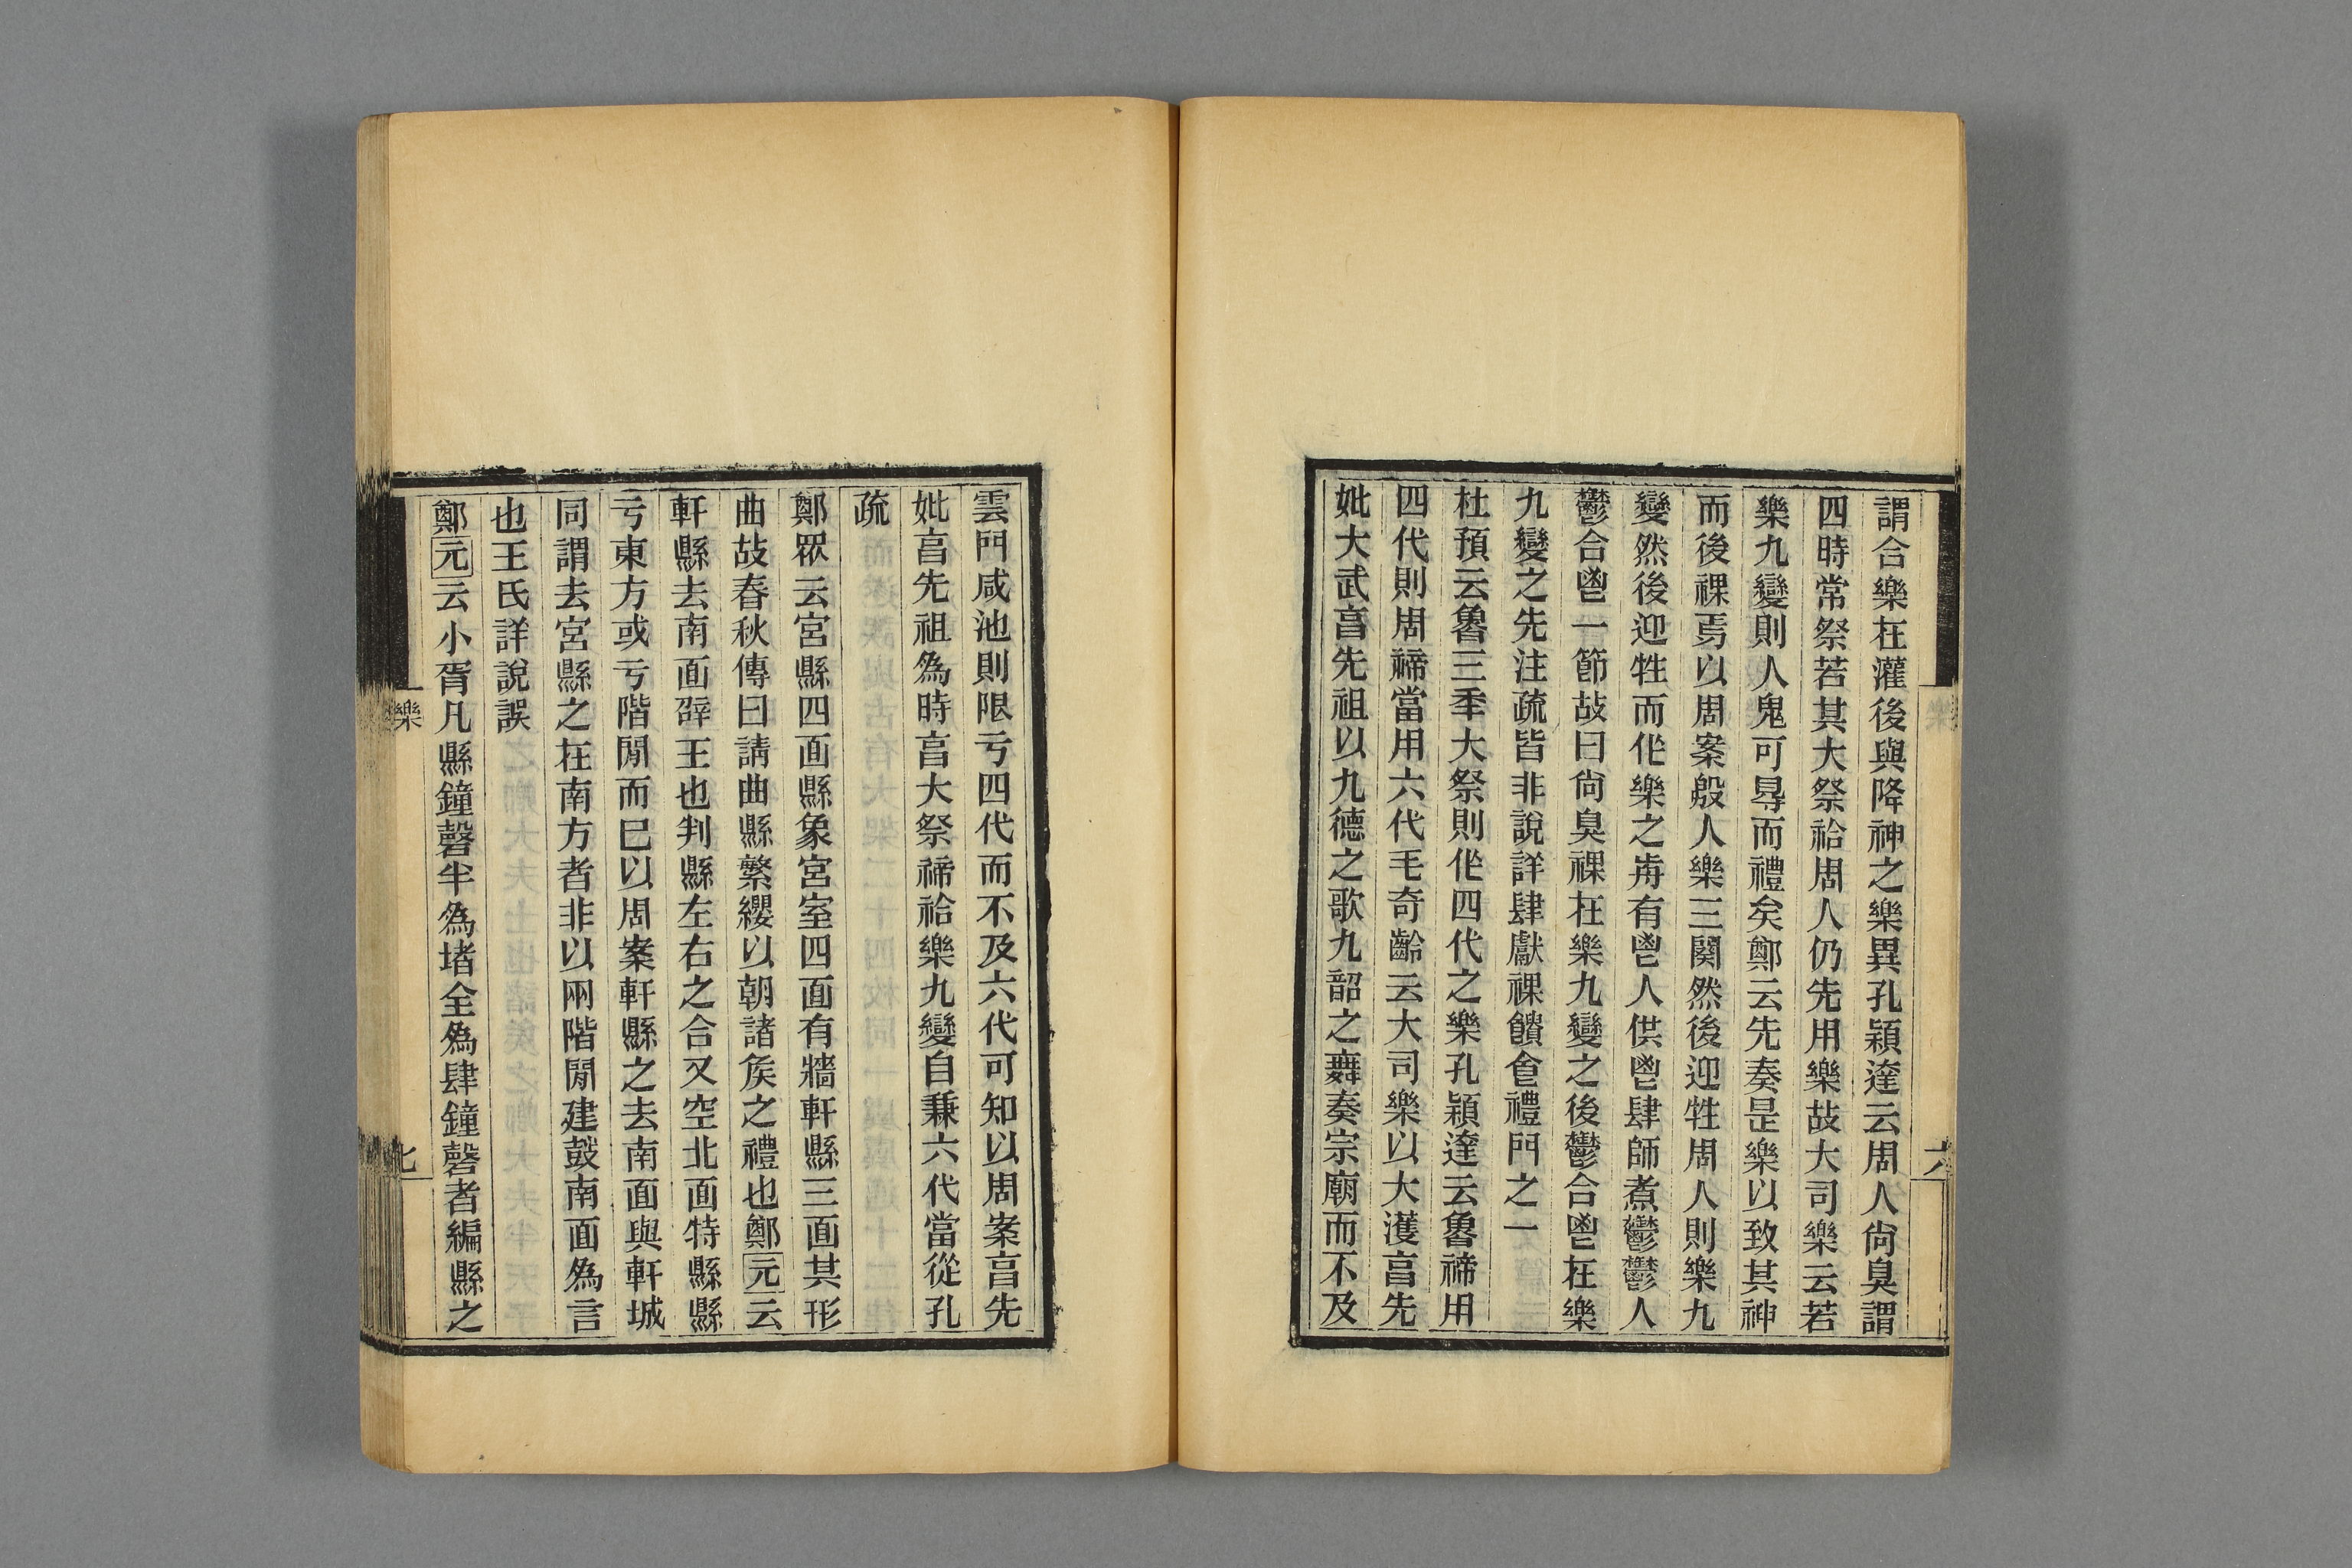 謂合樂在灌後與降神之樂異孔穎達云周人尙臭謂
四時常祭若其大祭祫周人仍先用樂故大司樂云若
樂九變則人鬼可㝵而禮矣鄭云先奏是樂以致其神
而後祼焉以周案殷人樂三闋然後迎牲周人則樂九
變然後迎牲而作樂之歬有鬯人供鬯肆師煮鬱鬱人
鬱合鬯一節故曰尙臭祼在樂九變之後鬱合鬯在樂
九變之先注疏皆非說詳肆獻祼饋食禮門之一
杜預云魯三秊大祭則作四代之樂孔穎達云魯禘用
四代則周禘當用六代毛奇齡云大司樂以大濩亯先
妣大武亯先祖以九德之歌九韶之舞奏宗廟而不及
六
雲門咸池則限亏四代而不及六代可知以周案亯先
妣亯先祖為時亯大祭禘祫樂九變自兼六代當從孔
疏
鄭眾云宮縣四面縣象宮室四面有牆軒縣三面其形
曲故春秋傳曰請曲縣繁纓以朝諸矦之禮也鄭元云
軒縣去南面辟王也判縣左右之合又空北面特縣縣
亏東方或亏階閒而已以周案軒縣之去南面與軒城
同謂去宮縣之在南方者非以兩階閒建鼓南面為言
也王氏詳說誤
鄭元云小胥凡縣鐘磬半為堵全為肆鐘磬者編縣之
樂
七